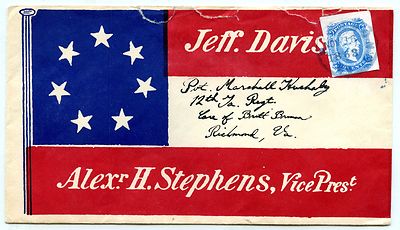 Jeff. Davis.
Pvt. Marshall
12th Ga. Regt.
Care of Britt
Richmond, Va.
Alexr. H. Stephens, Vice Prest.